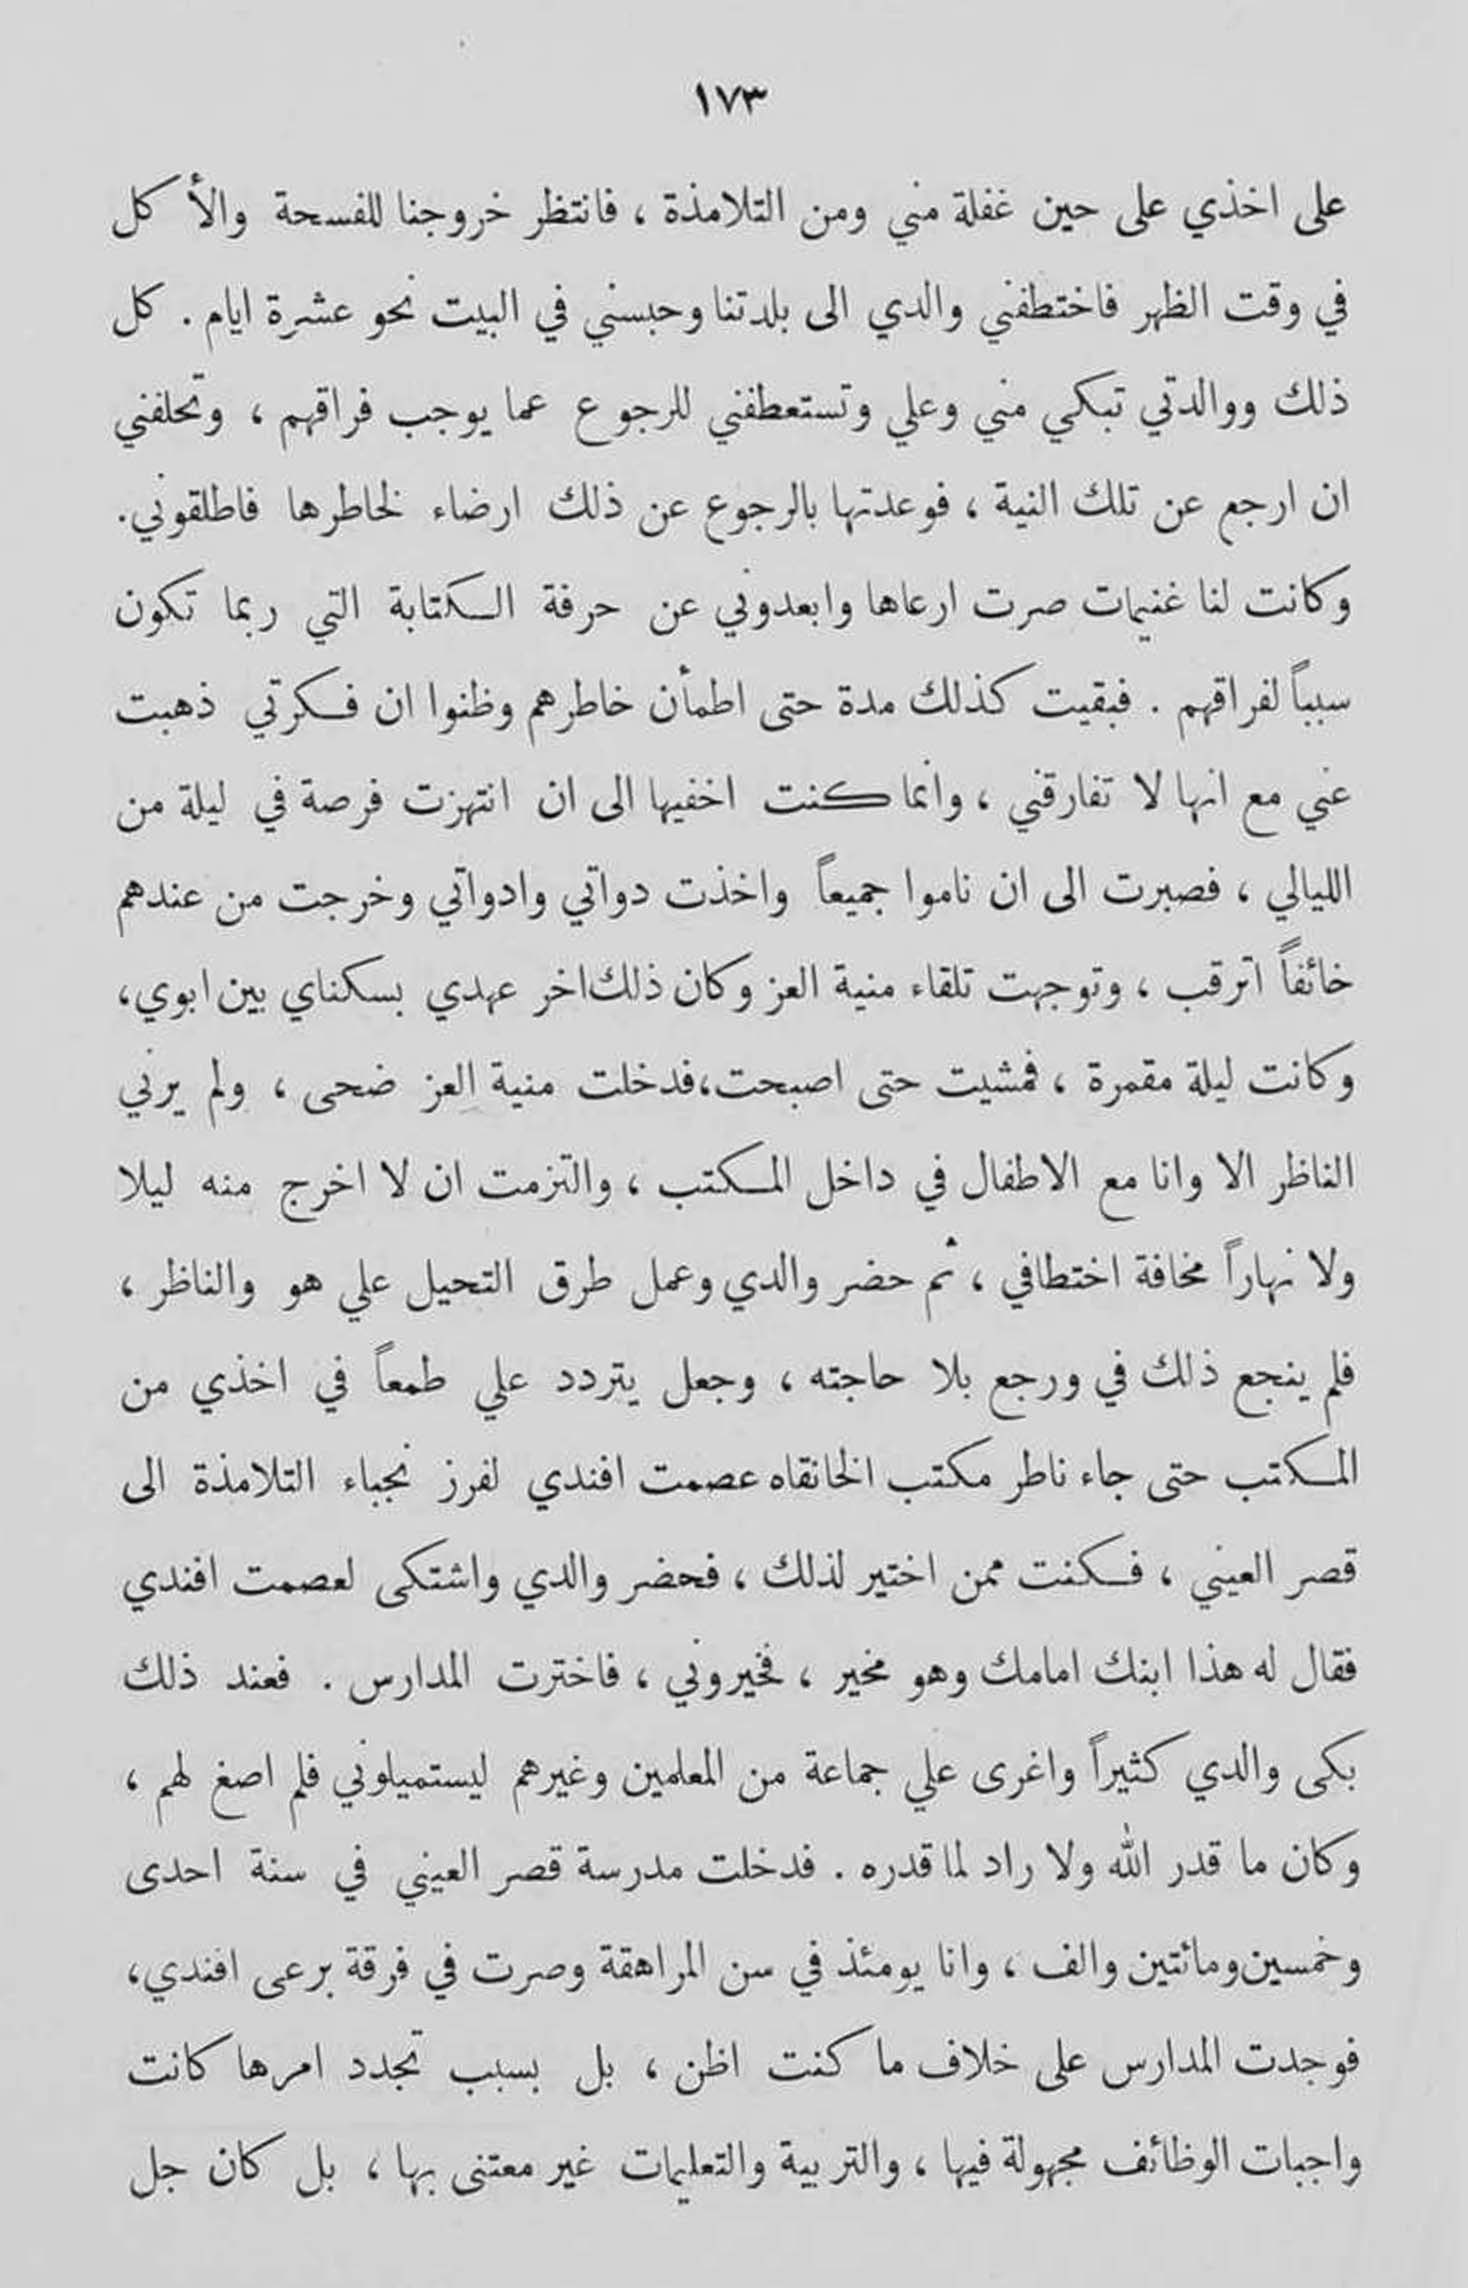 ١٧٣
على اخذي على حين غفلة مني ومن التلامذة ، فانتظر خروجنا للفسحة والأكل
في وقت الظهر فاختطفني والدي الى بلدتنا وحبسني في البيت نحو عشرة ايام . كل
ذلك ووالدتي تبكي مني وعلي وتستعطفني للرجوع عما يوجب فراقهم ، وتحلفني
ان ارجع عن تلك النية ، فوعدتها بالرجوع عن ذلك ارضاء لخاطرها فاطلقوني.
وكانت لنا غنيمات صرت ارعاها وابعدوني عن حرفة الكتابة التي ربما تكون
سبباً لفراقهم . فبقيت كذلك مدة حتى اطمأن خاطرهم وظنوا ان فكرتي ذهبت
عني مع انها لا تفارقني ، وانما كنت اخفيها الى ان انتهزت فرصة في ليلة من
الليالي ، فصبرت الى ان ناموا جميعاً واخذت دواتي وادواتي وخرجت من عندهم
خائفاً اترقب ، وتوجهت تلقاء منية العز وكان ذلك اخر عهدي بسكناي بين ابوي،
وكانت ليلة مقمرة ، فمشيت حتى اصبحت،فدخلت منية العز ضحى ، ولم يرني
الناظر الا وانا مع الاطفال في داخل المكتب ، والتزمت ان لا اخرج منه ليلا
ولا نهاراً مخافة اختطافي ، ثم حضر والدي وعمل طرق التحيل علي هو والناظر ،
فلم ينجع ذلك في ورجع بلا حاجته ، وجعل يتردد علي طمعاً في اخذي من
المكتب حتى جاء ناطر مكتب الخانقاه عصمت افندي لفرز نجباء التلامذة الى
قصر العيني ، فكنت ممن اختير لذلك ، فحضر والدي واشتكى لعصمت افندي
فقال له هذا ابنك امامك وهو مخير ، فخيروني ، فاخترت المدارس . فعند ذلك
بكى والدي كثيراً واغرى علي جماعة من المعلمين وغيرهم ليستميلوني فلم اصغ لهم ،
وكان ما قدر الله ولا راد لما قدره . فدخلت مدرسة قصر العيني في سنة احدى
وخمسين ومائتين والف ، وانا يومئذ في سن المراهقة وصرت في فرقة برعى افندي،
فوجدت المدارس على خلاف ما كنت اظن ، بل بسبب تجدد امرها كانت
واجبات الوظائف مجهولة فيها ، والتربية والتعليمات غير معتنى بها ، بل كان جل